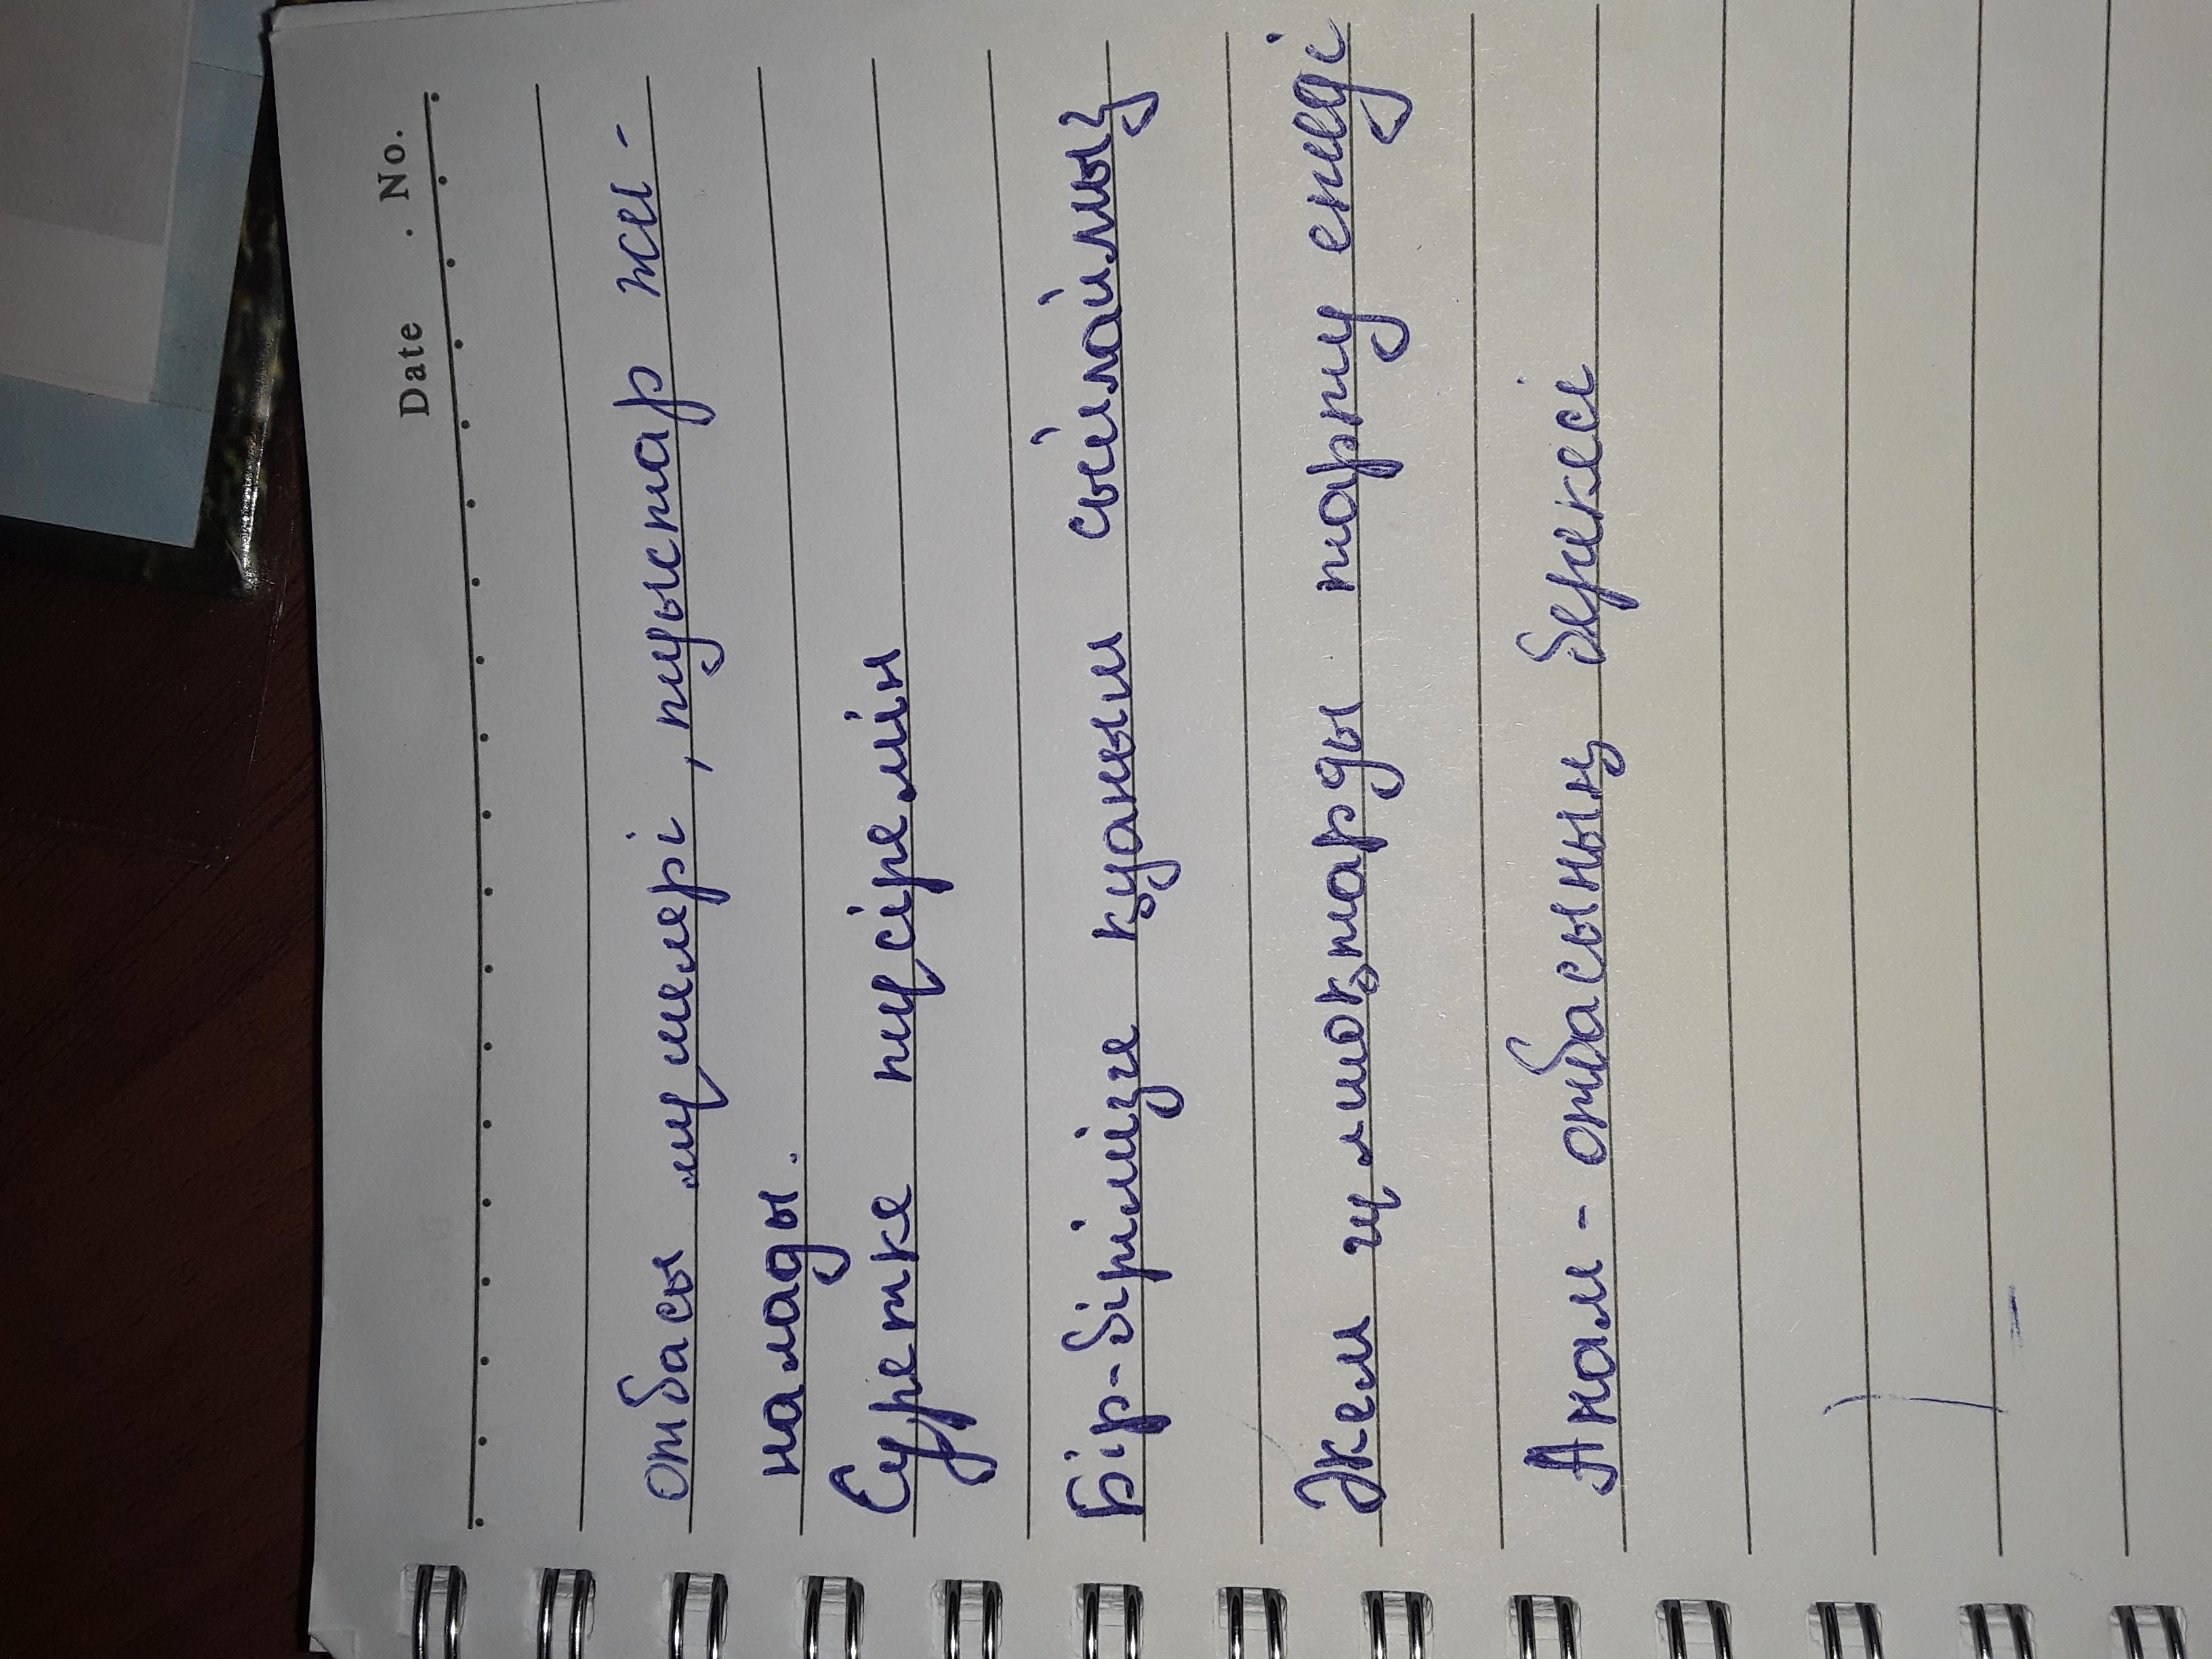 Date . No.
отбасы мүшелері, туыстар жи-
налады.
Суретке түсіремін
Бір-бірімізге қуанып сыйлаймыз
Әкем ұлтоқтарды тарту етеді
Анам - отбасының берекесі